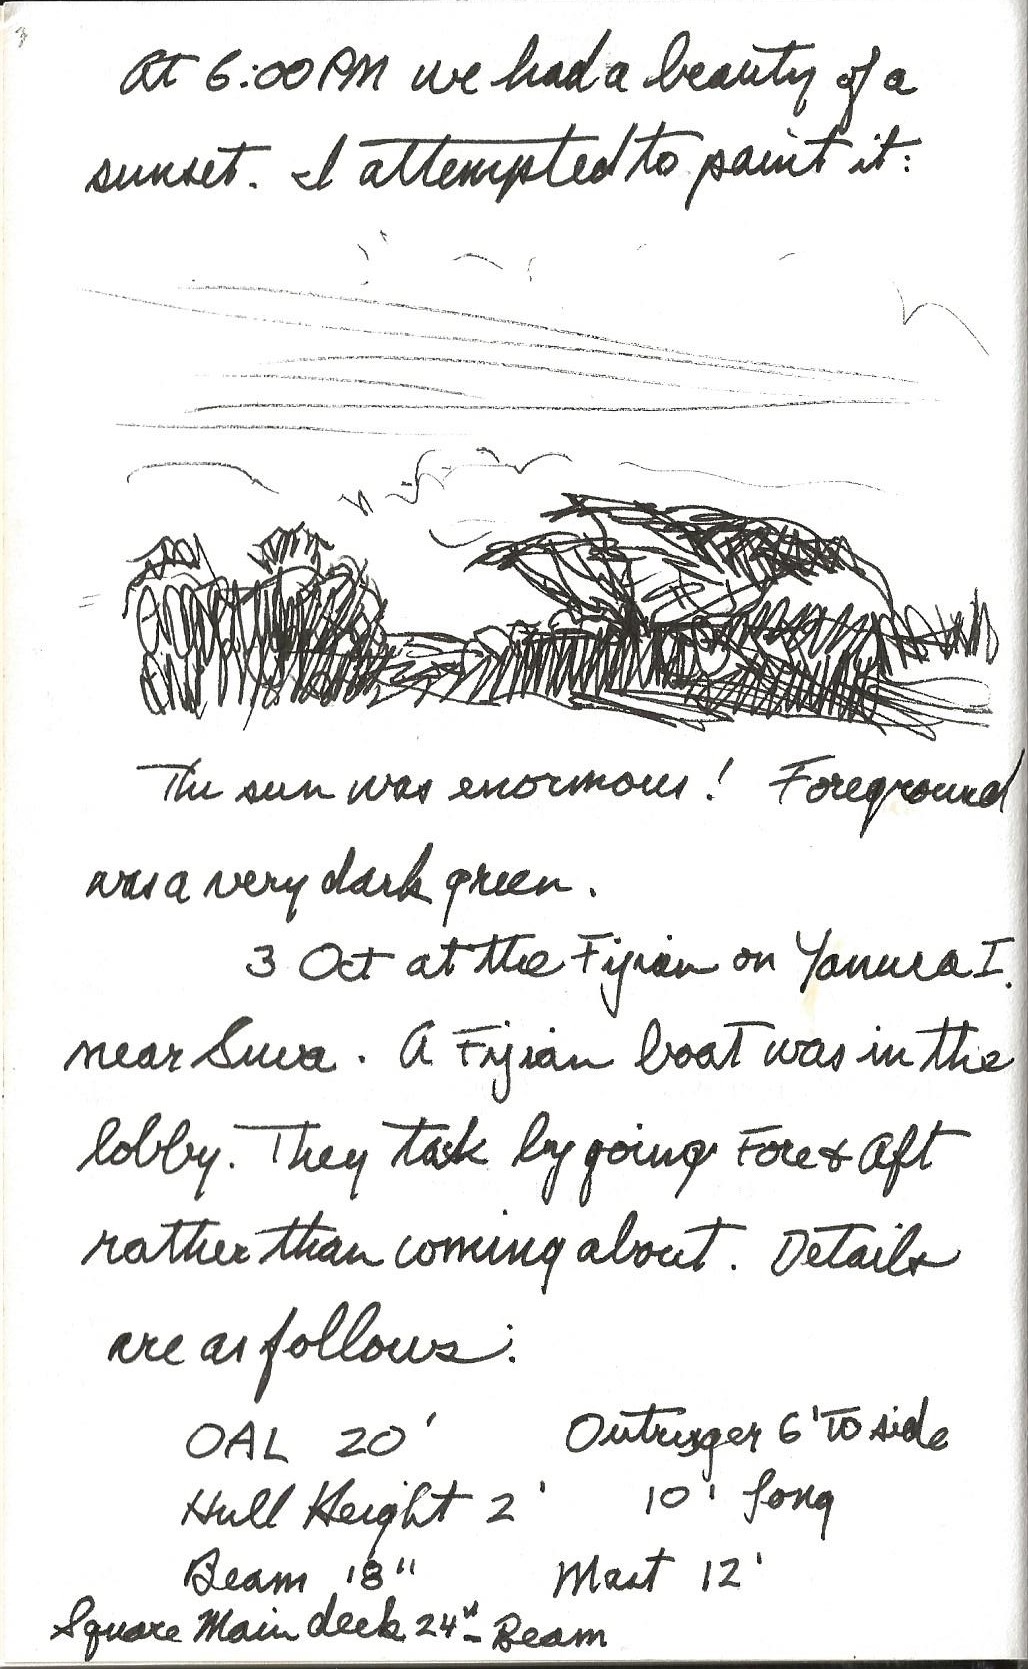 At 6:00 PM we had a beauty of a
sunset. I attempted to paint it:
The sun was enormous! Foreground
was a very dark green.
3 Oct at the Fijian on Yanuca I.
near Suva. A Fijian boat was in the
lobby. They task by going Fore & Aft
rather than coming about. Details
are as follows:
OAL 20' Outrigger 6' To side
Hull Height 2' 10' long
Beam 18" Mast 12'
Square Main deck 24" - Beam